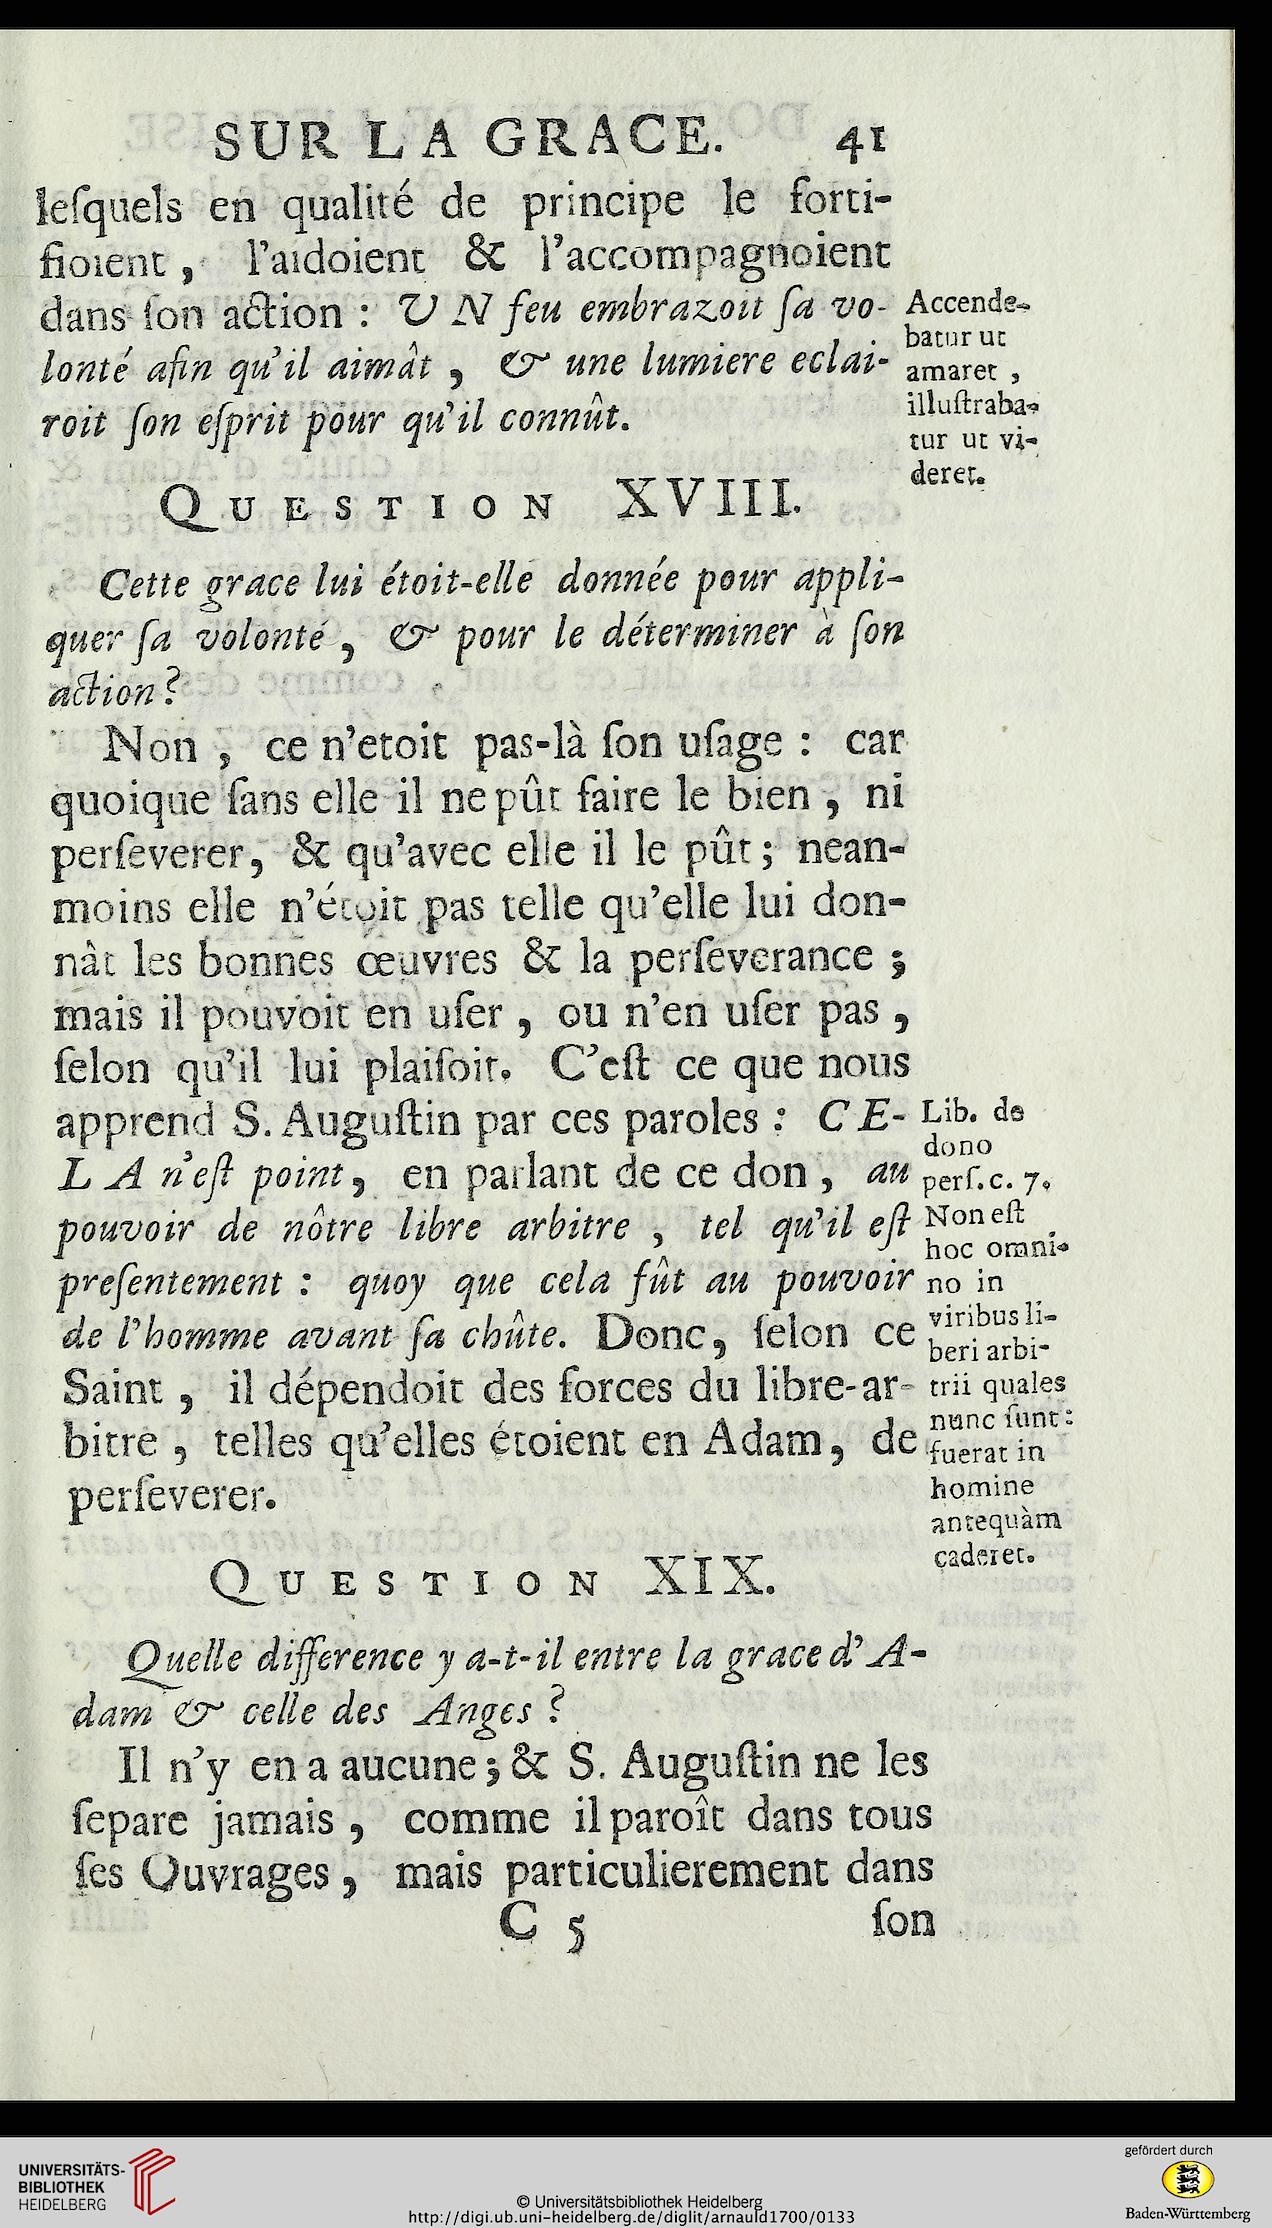 SUR LA GRACE. 41
leſquels en qualité de principe le forti-
fioient, l'aidoient & l'accompagnoient
dans ſon action : UN feu embrazoit ſa vo-
lonté afin qu'il aimât, & une lumiere eclai-
roit ſon eſprit pour qu'il connût.
Accende-
batur ut
amaret,
illuſtraba-
tur ut vi-
deret.
QUESTION XVIII.
Cette grace lui étoit-elle donnée pour appli-
quer ſa volonté, & pour le déterminer à ſon
action?
Non, ce n'etoit pas-là ſon uſage : car
quoique ſans elle il ne pût faire le bien, ni
perſeverer, & qu'avec elle il le pût; nean-
moins elle n'étoit pas telle qu'elle lui don-
nât les bonnes œuvres & la perſeverance;
mais il pouvoit en uſer, ou n'en uſer pas,
ſelon qu'il lui plaiſoit. C'eſt ce que nous
apprend S. Auguſtin par ces paroles : CE-
LA n'eſt point, en parlant de ce don, au
pouvoir de nôtre libre arbitre, tel qu'il eſt
preſentement : quoy que cela fût au pouvoir
de l'homme avant ſa chûte. Donc, ſelon ce
Saint, il dépendoit des forces du libre-ar-
bitre, telles qu'elles étoient en Adam, de
perſeverer.
Lib. de
dono
perſ. c. 7.
Non eſt
hoc omni-
no in
viribus li-
beri arbi-
trii quales
nunc ſunt:
fuerat in
homine
antequàm
caderet.
QUESTION XIX.
Quelle difference y a-t-il entre la grace d'A-
dam & celle des Anges?
Il n'y en a aucune; & S. Auguſtin ne les
ſepare jamais, comme il paroît dans tous
ſes Ouvrages, mais particulierement dans
C 5 ſon
UNIVERSITÄTS-
BIBLIOTHEK
HEIDELBERG
© Universitätsbibliothek Heidelberg
http://digi.ub.uni-heidelberg.de/diglit/arnauld1700/0133
gefördert durch
Baden-Württemberg